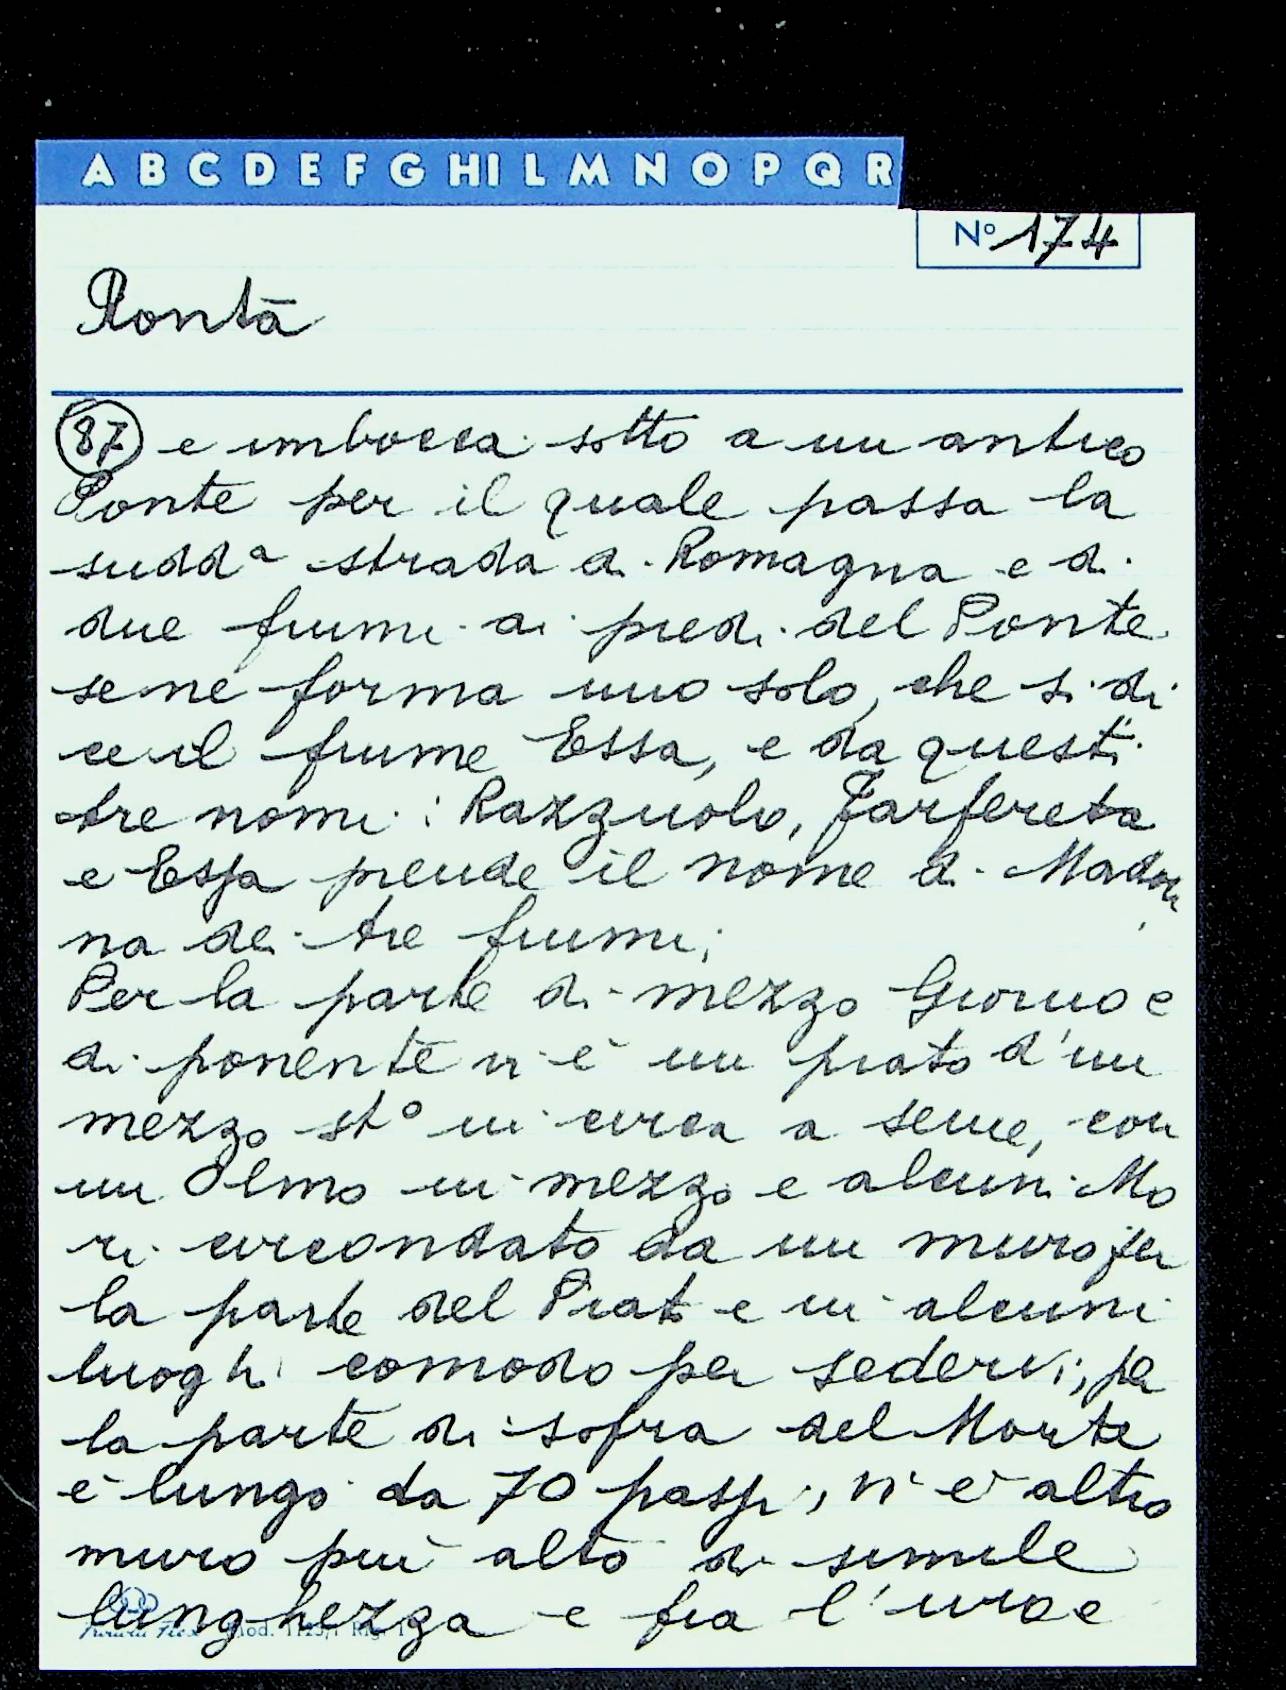 A B C D E F G HI L M N O P Q R
Nº 174
Rontà
87 e imbocca sotto a un antico
Ponte per il quale passa la
sudda strada di Romagna e di
due fiumi ai piedi del Ponte
se ne forma uno solo, che si di
ce il fiume Essa, e da questi
tre nomi: Razzuolo, Farfereta
e Essa prende il nome di Madon
na dei tre fiumi;
Per la parte di mezzo Giorno e
di ponente vi è un prato d'un
mezzo sto in circa a seme, con
un Olmo in mezzo e alcuni Mo
ri circondato da un muro per
la parte del Prato e in alcuni
luoghi comodo per sedervi; per
la parte di sopra del Monte
è lungo da 70 passi, vi è altro
muro più alto di simile
lunghezza e fra l'uno e
Mod. Rig.